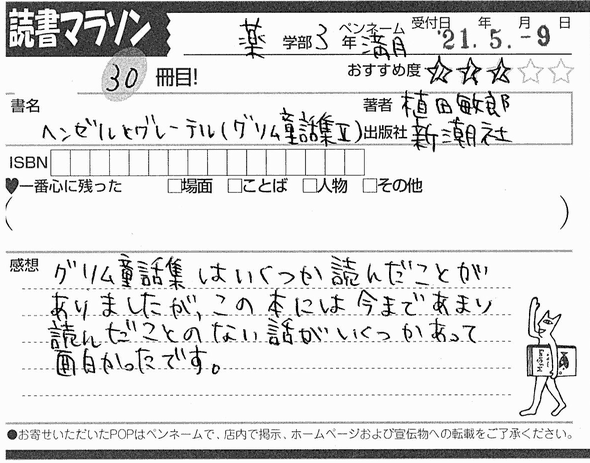 読書マラソン
薬 学部 3 年 ペンネーム 満月 受付日 年 月 日 '21. 5. -9
30 冊目! おすすめ度 ★★★☆☆
書名 著者 植田敏郎
ヘンゼルとグレーテル(グリム童話集Ⅱ) 出版社 新潮社
ISBN
♥一番心に残った □場面 □ことば □人物 □その他
( )
感想 グリム童話集はいくつか読んだことが
ありましたが、この本には今まであまり
読んだことのない話がいくつかあって
面白かったです。
●お寄せいただいたPOPはペンネームで、店内で掲示、ホームページおよび宣伝物への転載をご了承ください。